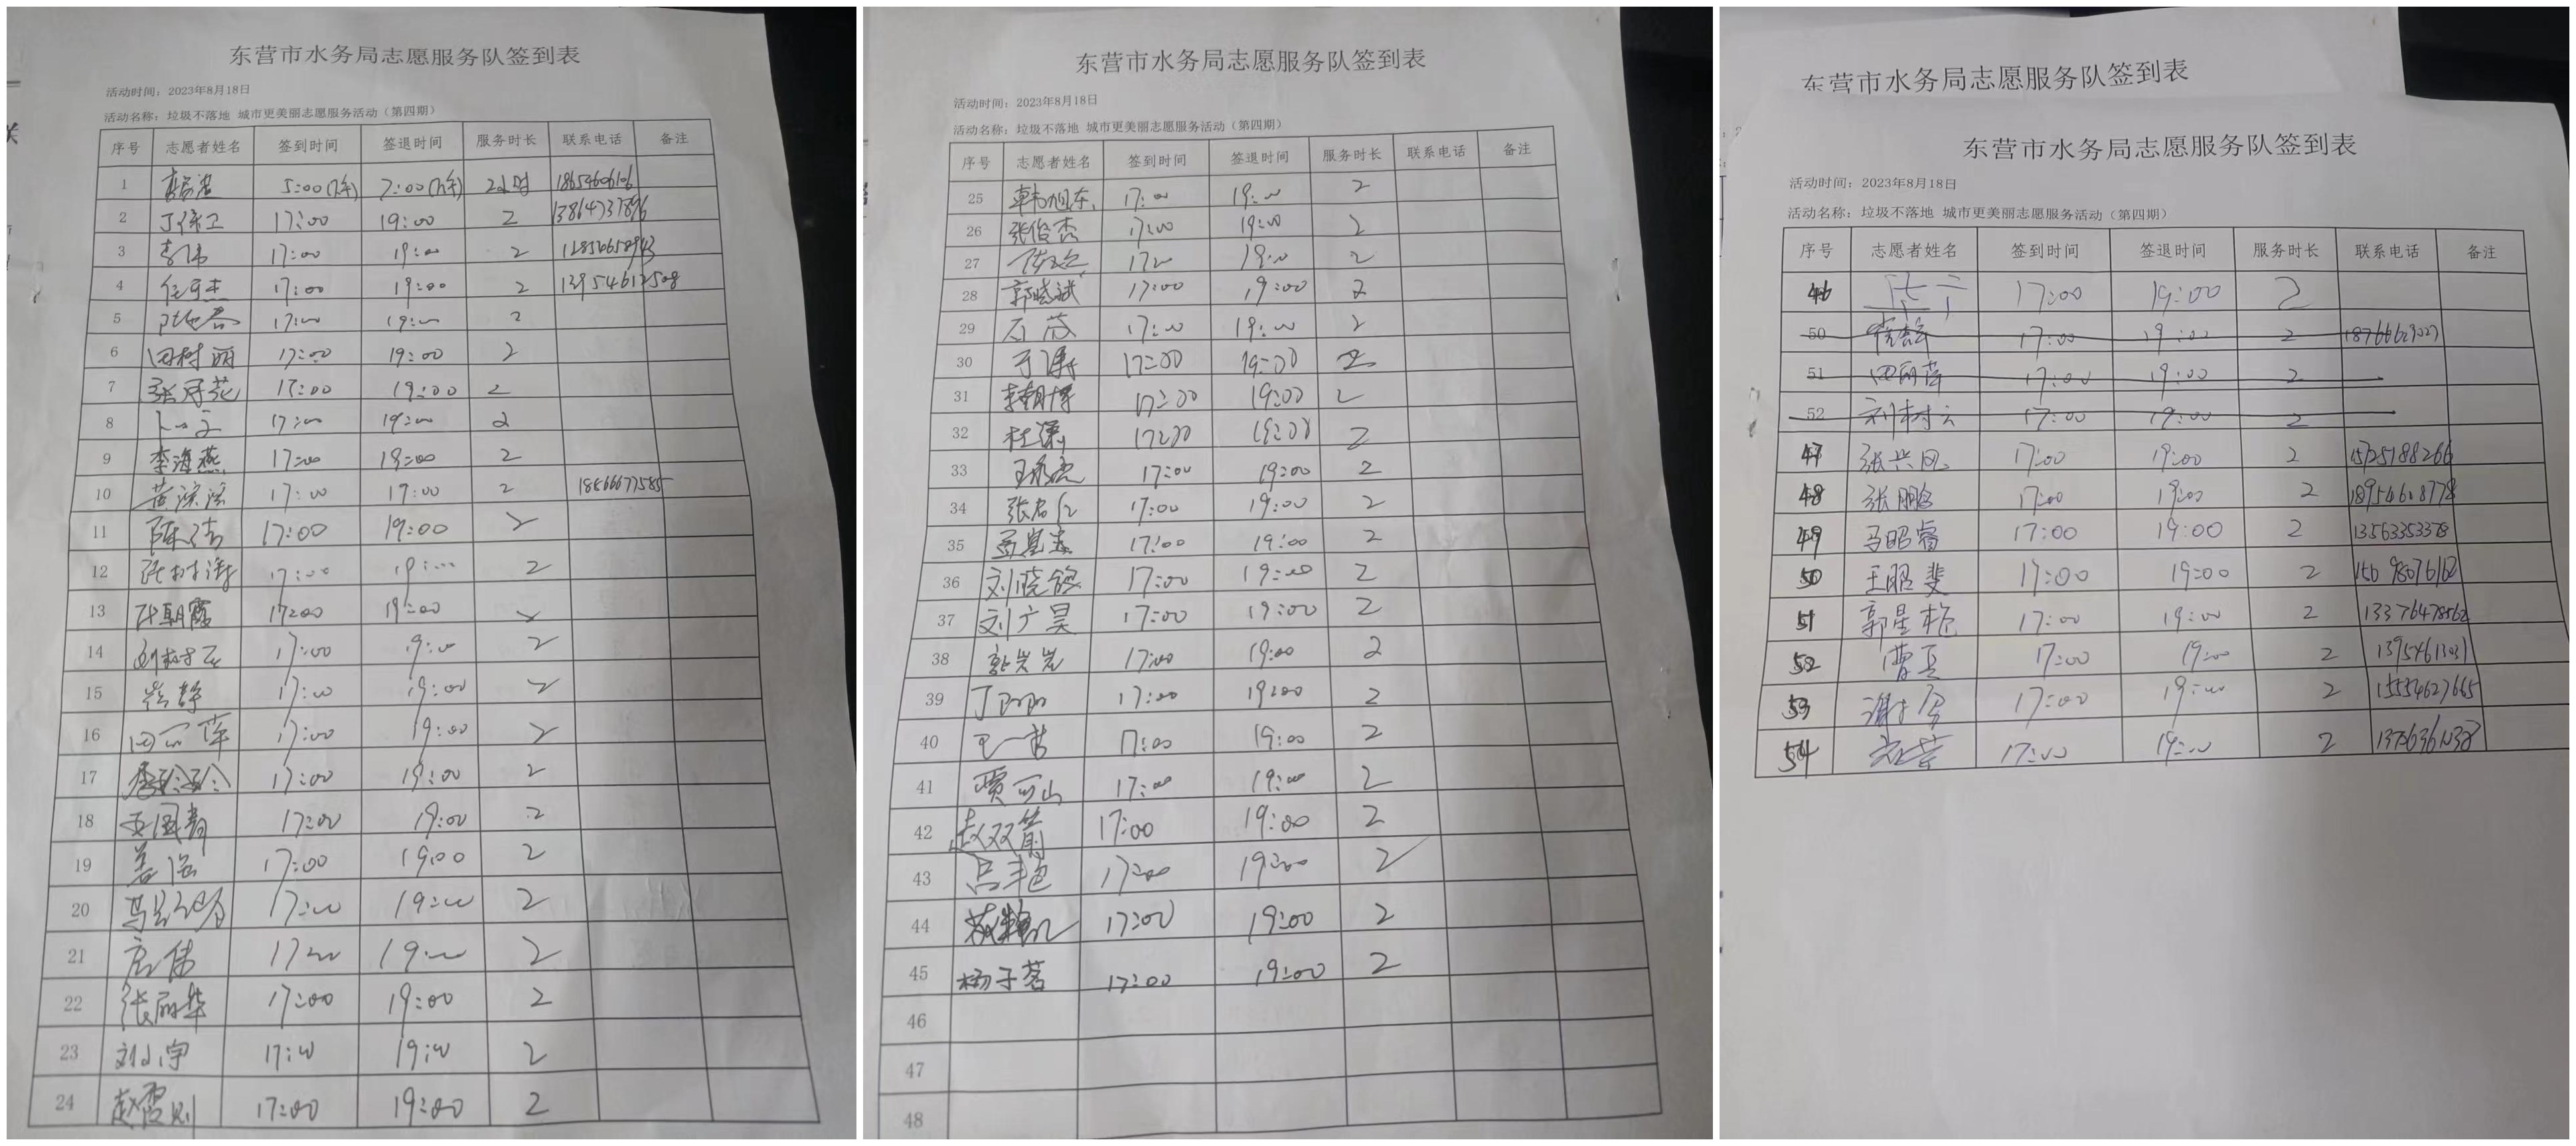 东营市水务局志愿服务队签到表
活动时间：2023年8月18日
活动名称：垃圾不落地 城市更美丽志愿服务活动（第四期）
序号 志愿者姓名 签到时间 签退时间 服务时长 联系电话 备注
1 5:00(下午) 7:00(下午) 2小时 18654606106
2 17:00 19:00 2 13864737896
3 李伟 17:00 19:00 2
4 任可杰 17:00 19:00 2 13954612508
5 17:00 19:00 2
6 田树丽 17:00 19:00 2
7 17:00 19:00 2
8 17:00 19:00 2
9 李海燕 17:00 19:00 2
10 黄滨滨 17:00 17:00 2 18866677585
11 陈洁 17:00 19:00 2
12 17:00 19:00 2
13 张朝霞 17:00 19:00 2
14 刘树云 17:00 19:00 2
15 崔静 17:00 19:00 2
16 田丽萍 17:00 19:00 2
17 李玲玲 17:00 19:00 2
18 17:00 19:00 2
19 姜浩 17:00 19:00 2
20 17:00 19:00 2
21 17:00 19:00 2
22 张丽华 17:00 19:00 2
23 刘小宇 17:00 19:00 2
24 赵霞 17:00 19:00 2
东营市水务局志愿服务队签到表
活动时间：2023年8月18日
活动名称：垃圾不落地 城市更美丽志愿服务活动（第四期）
序号 志愿者姓名 签到时间 签退时间 服务时长 联系电话 备注
25 韩旭东 17:00 19:00 2
26 张俊杰 17:00 19:00 2
27 17:00 19:00 2
28 郭晓斌 17:00 19:00 2
29 石茂 17:00 19:00 2
30 于涛 17:00 19:00 2
31 李朝博 17:00 19:00 2
32 杜涛 17:00 19:00 2
33 17:00 19:00 2
34 张名仁 17:00 19:00 2
35 17:00 19:00 2
36 17:00 19:00 2
37 刘广昊 17:00 19:00 2
38 郭岩岩 17:00 19:00 2
39 丁丽丽 17:00 19:00 2
40 17:00 19:00 2
41 贾可山 17:00 19:00 2
42 赵双箭 17:00 19:00 2
43 吕丰迪 17:00 19:00 2
44 17:00 19:00 2
45 杨子茗 17:00 19:00 2
46
47
48
东营市水务局志愿服务队签到表
东营市水务局志愿服务队签到表
活动时间：2023年8月18日
活动名称：垃圾不落地 城市更美丽志愿服务活动（第四期）
序号 志愿者姓名 签到时间 签退时间 服务时长 联系电话 备注
46 17:00 19:00 2
50 17:00 19:00 2
51 田丽萍 17:00 19:00 2
52 刘树云 17:00 19:00 2
47 张兴国 17:00 19:00 2 15725188266
48 张鹏 17:00 19:00 2 18954608778
49 马昭睿 17:00 19:00 2 13563353378
50 王昭斐 17:00 19:00 2 15098076162
51 郭星艳 17:00 19:00 2 13376478562
52 曹真 17:00 19:00 2 13954613031
53 17:00 19:00 2 15554627665
54 17:00 19:00 2